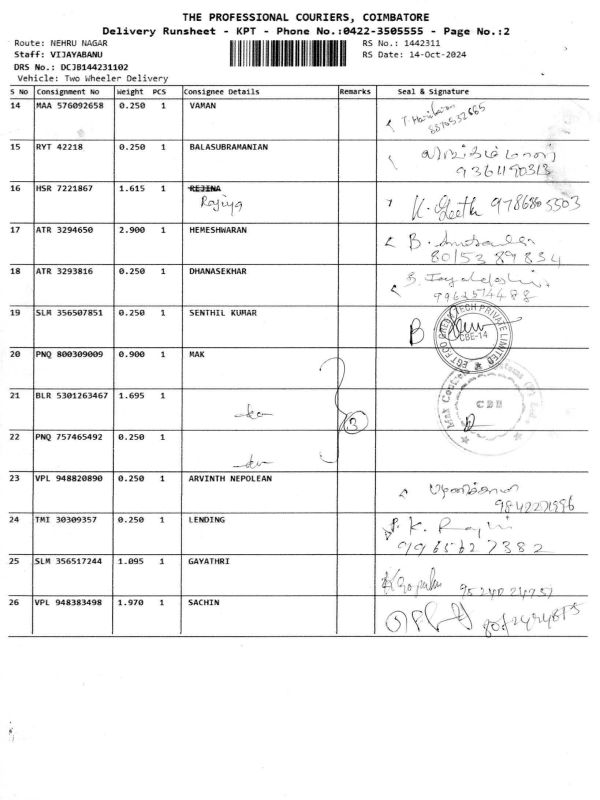 THE PROFESSIONAL COURIERS, COIMBATORE
Delivery Runsheet - KPT - Phone No.:0422-3505555 - Page No.:2
Route: NEHRU NAGAR RS No.: 1442311
Staff: VIJAYABANU RS Date: 14-Oct-2024
DRS No.: DCJB144231102
Vehicle: Two Wheeler Delivery
S No Consignment No Weight PCS Consignee Details Remarks Seal & Signature
14 MAA 576092658 0.250 1 VAMAN
15 RYT 42218 0.250 1 BALASUBRAMANIAN
9361190313
16 HSR 7221867 1.615 1 REJINA
Rajiya K. Geetha 9786805503
17 ATR 3294650 2.900 1 HEMESHWARAN B.
80153 89834
18 ATR 3293816 0.250 1 DHANASEKHAR
19 SLM 356507851 0.250 1 SENTHIL KUMAR
EGT FOODGRAIN TECH PRIVATE LIMITED
CBE-14
20 PNQ 800309009 0.900 1 MAK
21 BLR 5301263467 1.695 1
CBE
3
22 PNQ 757465492 0.250 1
23 VPL 948820890 0.250 1 ARVINTH NEPOLEAN
9842271996
24 TMI 30309357 0.250 1 LENDING
9965627382
25 SLM 356517244 1.095 1 GAYATHRI
26 VPL 948383498 1.970 1 SACHIN